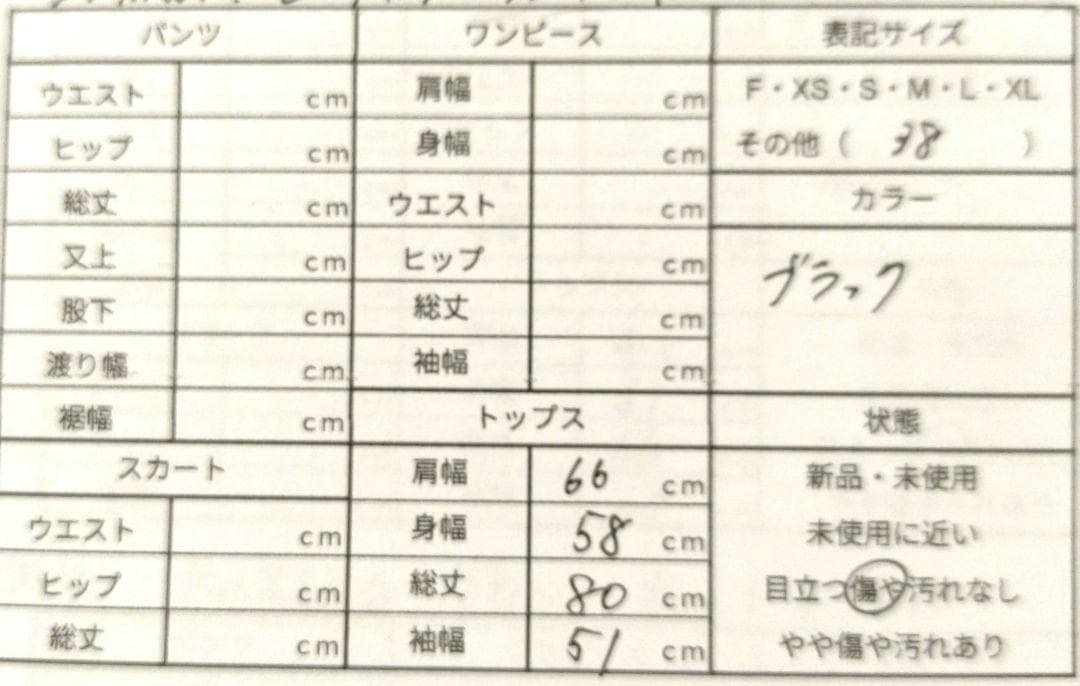 パンツ ワンピース 表記サイズ
ウエスト cm 肩幅 cm F・XS・S・M・L・XL
ヒップ cm 身幅 cm その他( 38 )
総丈 cm ウエスト cm カラー
又上 cm ヒップ cm ブラック
股下 cm 総丈 cm
渡り幅 cm 袖幅 cm
裾幅 cm トップス 状態
スカート 肩幅 66 cm 新品・未使用
ウエスト cm 身幅 58 cm 未使用に近い
ヒップ cm 総丈 80 cm 目立つ傷や汚れなし
総丈 cm 袖幅 51 cm やや傷や汚れあり